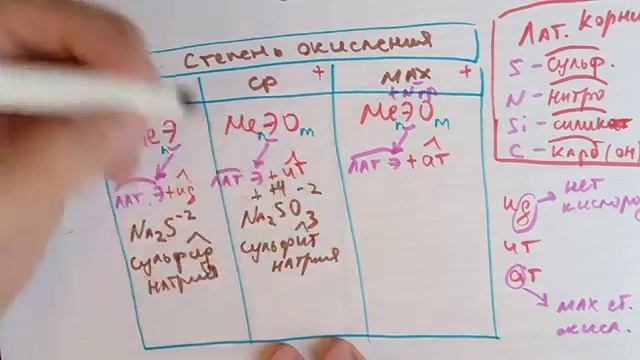 степень окисления
ср +
мах +
+ № гр
МеЭ
n
МеЭО
n m
МеЭО
n m
Лат Э + ид
Лат Э + ит
Лат Э + ат
+ +4 -2
Na2S-2
Na2SO3
сульфид
натрия
сульфит
натрия
Лат. корни
S - сульф.
N - нитро
Si - силикат
C - карб(он)
ид
нет
кислоро
ит
ат
мах ст.
окисл.